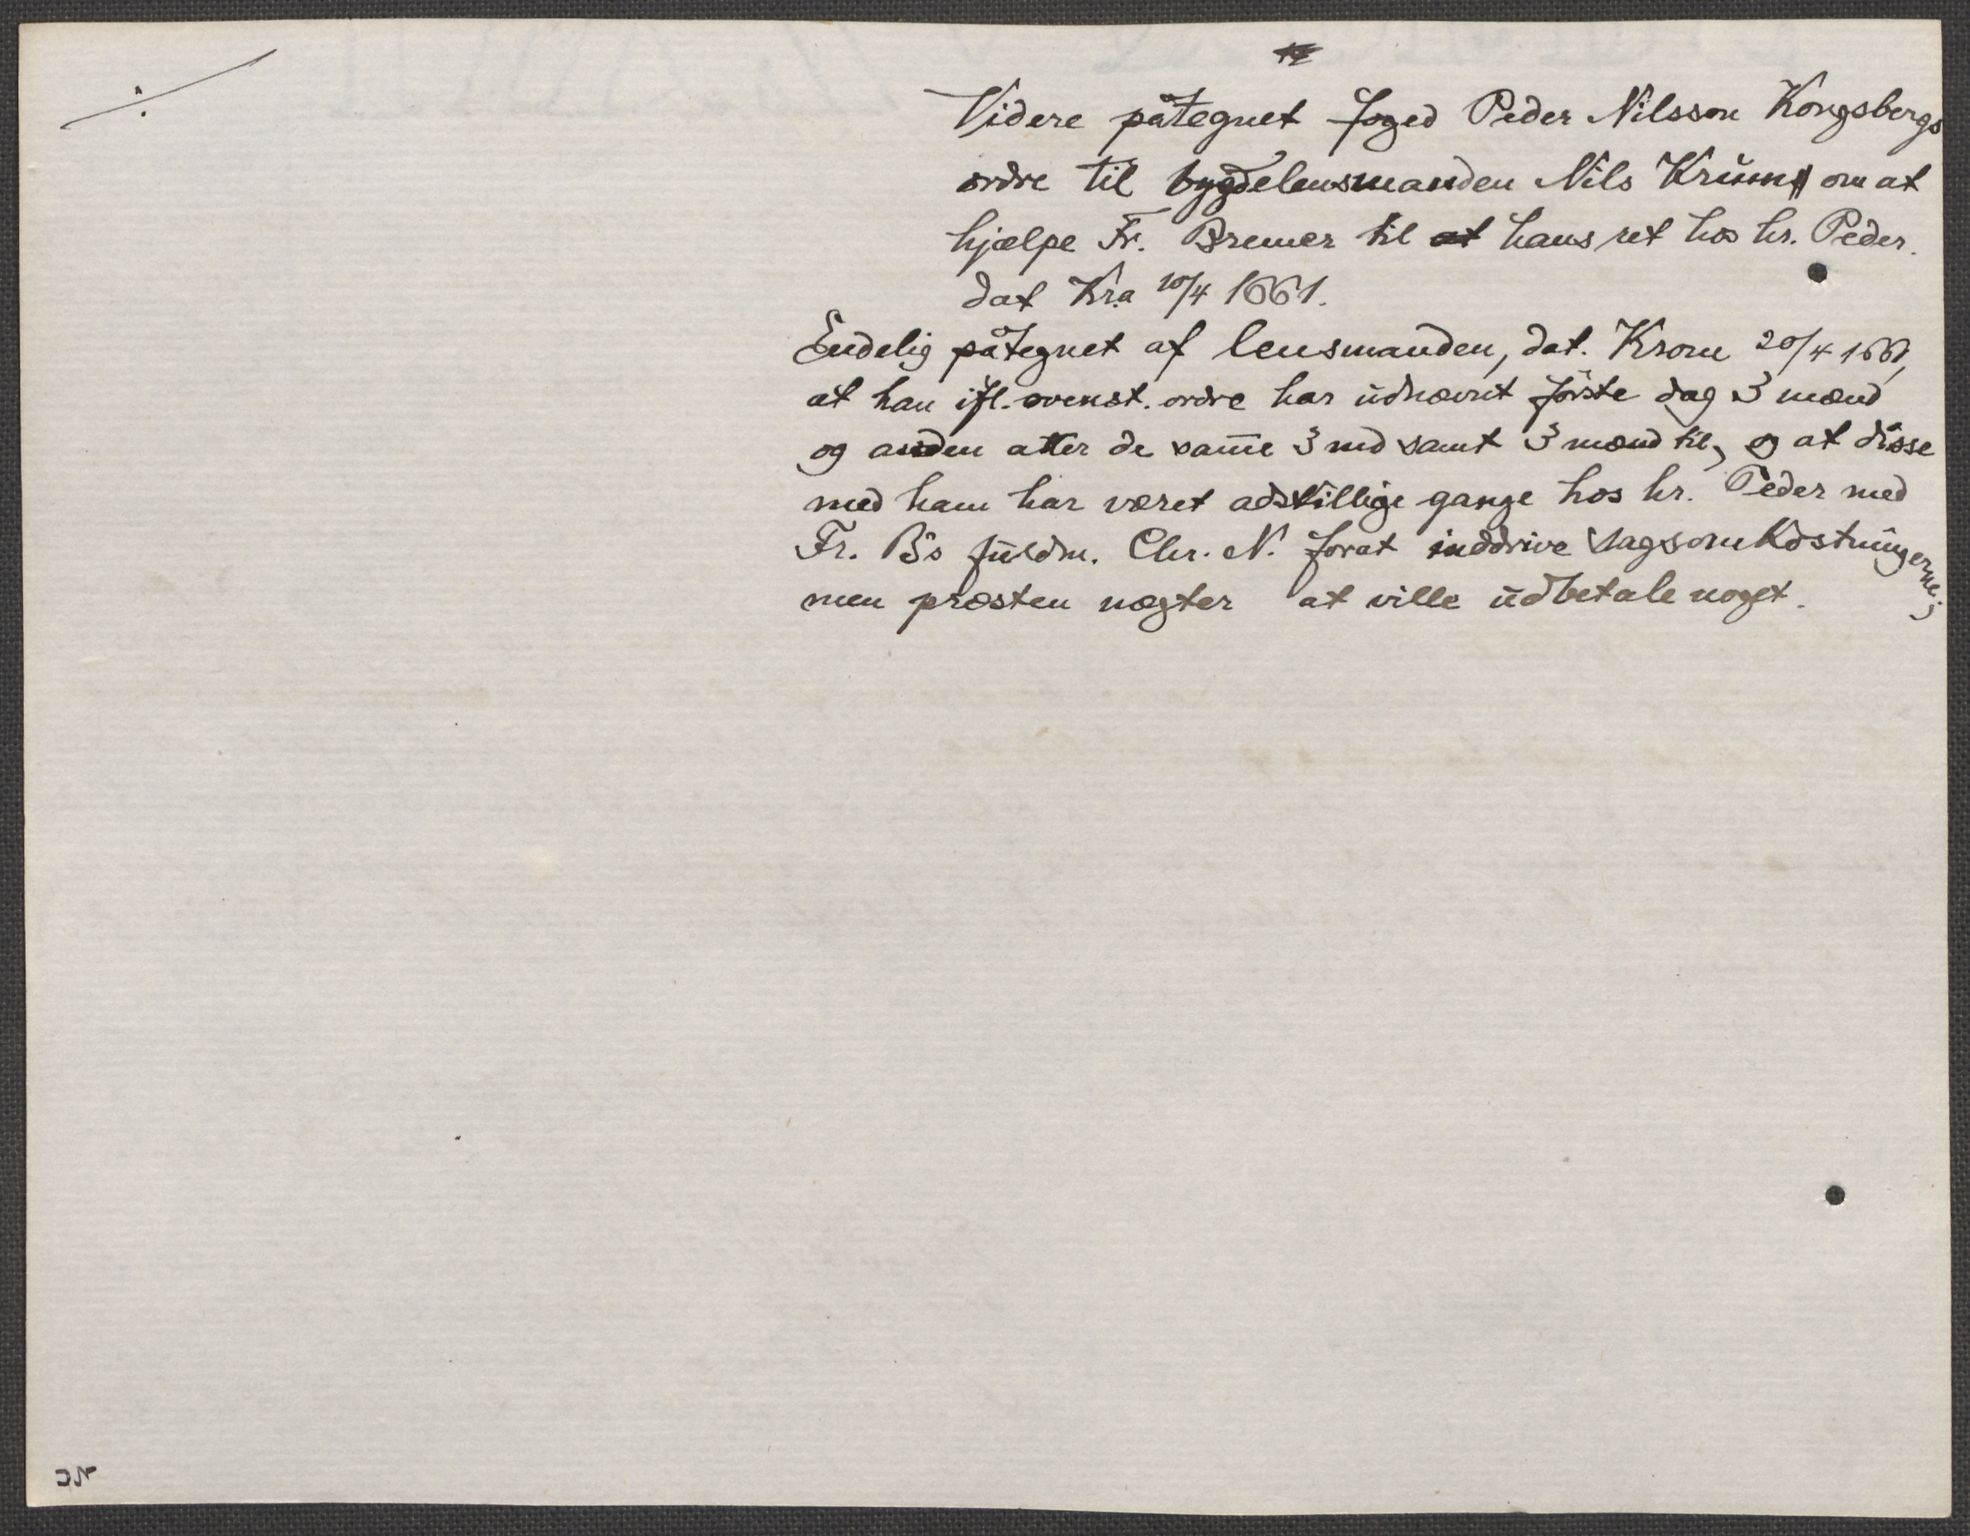 ÷
Videre påtegnet foged Peder Nilsson Kongsbergs
ordre til bygdelensmanden Nils Krüm om at
hjælpe Fr. Bremer til at hans ret hos hr. Peder.
dat Kra 10/4 1661.
Endelig påtegnet af lensmanden, dat. Krom 20/4 1661,
at han ifl. ovenst. ordre har ŭdnævnt første dag 3 mænd
og anden atter de sam̄e 3 md samt 3 mænd til, og at disse
med ham har været adskillige gange hos hr. Peder med
Fr. B's fŭldm. Chr. N. forat inddrive sagsomkostnŭngerne;
men præsten nægter at ville ŭdbetale noget.